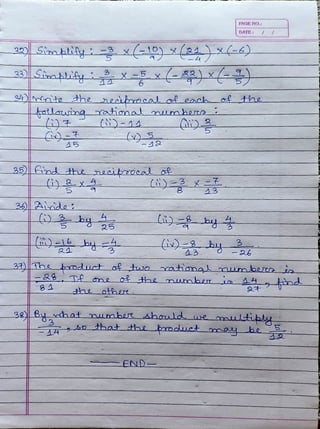 PAGE NO.:
DATE: / /
32) Simplify : -3/5 × (-10/9) × (21/-4) × (-6)
33) Simplify : 3/11 × -5/6 × (-22/9) × (-9/5)
34) Write the reciprocal of each of the
following rational numbers :
(i) 7 (ii) -11 (iii) 2/5
(iv) -7/15 (v) 5/-12
35) Find the reciprocal of
(i) 2/5 × 4/9 (ii) -3/8 × -7/13
36) Divide :
(i) 3/5 by 4/25 (ii) -8/9 by 4/3
(iii) -16/21 by -4/3 (iv) -8/13 by 3/-26
37) The product of two rational numbers is
-28/81. If one of the number is 14/27, find
the other.
38) By what number should we multiply
3/-14, so that the product may be 5/12.
END